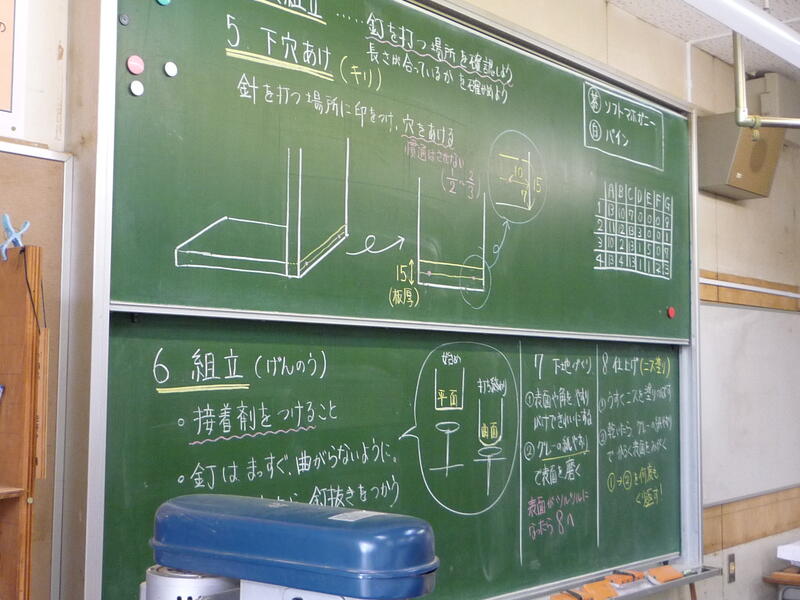 組立……釘を打つ場所を確認しよう
長さが合っているかを確かめよう
5 下穴あけ(キリ)
針を打つ場所に印をつけ、穴をあける
貫通はさせない
(1/2~2/3)
10
15
7
15
(板厚)
茶 ソフトマホガニー
白 パイン
A B C D E F G
1
2
3
4
6 組立(げんのう)
・接着剤をつけること
・釘はまっすぐ、曲がらないように。
釘抜きをつかう
始め
平面
打ち終わり
曲面
7 下地づくり
①表面や角をやすり
がけできれいにする
②グレーの紙やすり
で表面を磨く
表面がツルツルに
なったら8へ
8 仕上げ(ニス塗り)
①うすくニスを塗りのばす
②乾いたらグレーの紙やすり
でかるく表面をみがく
①→②を何度も
くり返す!